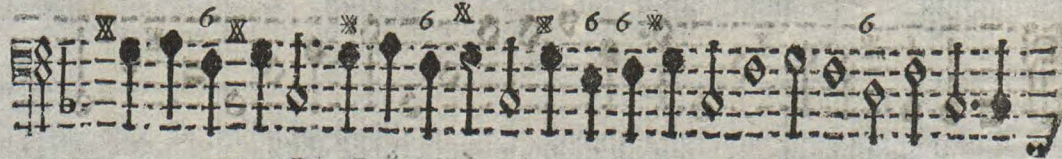 6 6 6 6 6